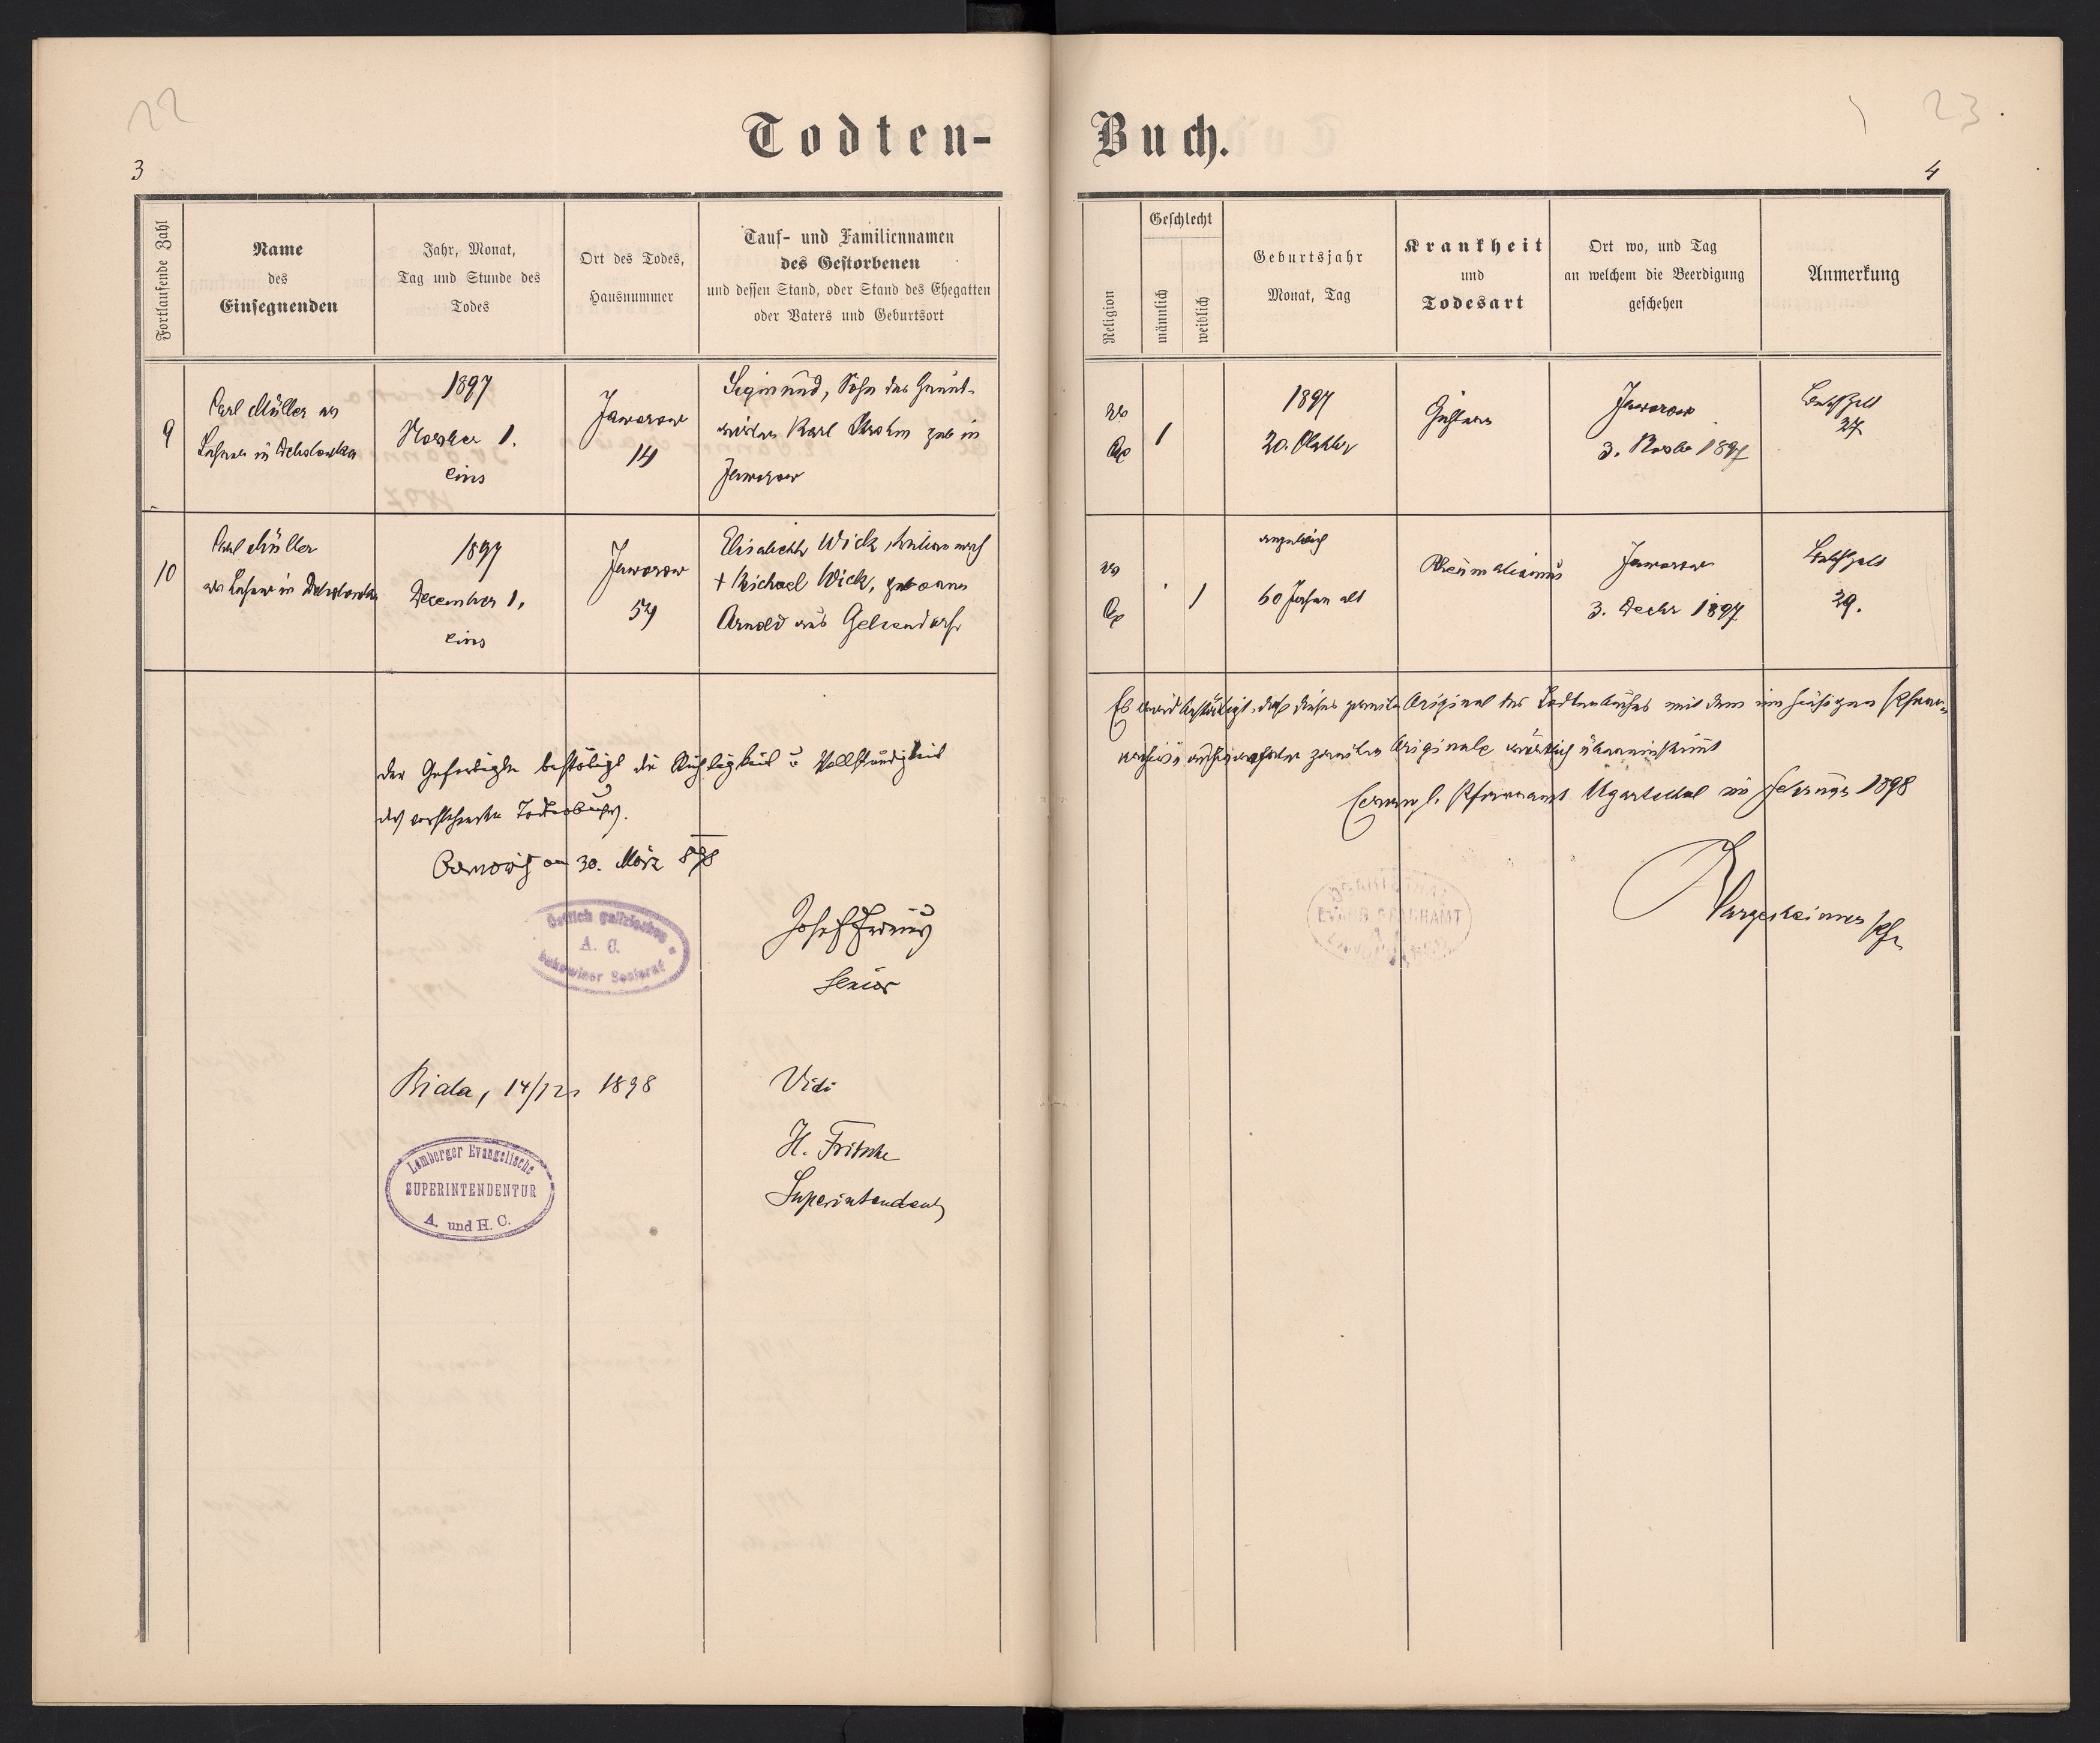 22
23.
3
4
Todten-Buch.
Fortlaufende Zahl
Name
des
Einsegnenden
Jahr, Monat,
Tag und Stunde des
Todes
Ort des Todes,
Hausnummer
Tauf- und Familiennamen
des Gestorbenen
und dessen Stand, oder Stand des Ehegatten
oder Vaters und Geburtsort
Religion
Geschlecht
männlich
weiblich
Geburtsjahr
Monat, Tag
Krankheit
und
Todesart
Ort wo, und Tag
an welchem die Beerdigung
geschehen
Anmerkung
9
Carl Müller als
Lehrer in
1897
November 1.
eins
Jaworow
14
Sigmund, Sohn des Grund-
Karl geb in
Jaworow
1
1897
20. Oktober
Jaworow
3. Novbr 1897
27
10
Carl Müller
als Lehrer in
1897
Dezember 1.
eins
Jaworow
54
Elisabeth Wick,
+ Michael Wick, geborene
Arnold aus Gelsendorf
1
angeblich
60 Jahre alt
Rheumatismus
Jaworow
3. Decbr 1897
29.
Es wird bestätigt, daß dieses zweite Original des Todtenbuches mit dem im hiesigen Pfarr-
zweiten Originale wörtlich übereinstimmt
Evangl. Pfarramt Ugartsthal im Februar 1898
Der Gefertigte bestätigt die Richtigkeit u Vollständigkeit
des vorstehenden Todtenbuches.
am 30. März 898
Östlich galizisches
A. C.
bukowiner Seniorat
Josef
Senior
UGARTSTHAL
EVANG. PFARRAMT
Pfr
Biala, 14/12 1898
Vidi
H. Fritsche
Superintendent
Lemberger Evangelische
SUPERINTENDENTUR
A. und H. C.